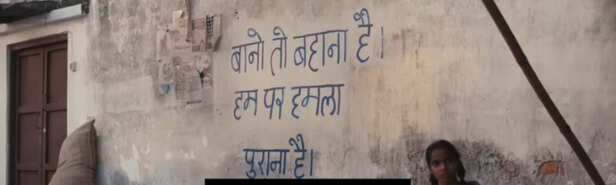 बानो तो बहाना है।
हम पर हमला
पुराना है।